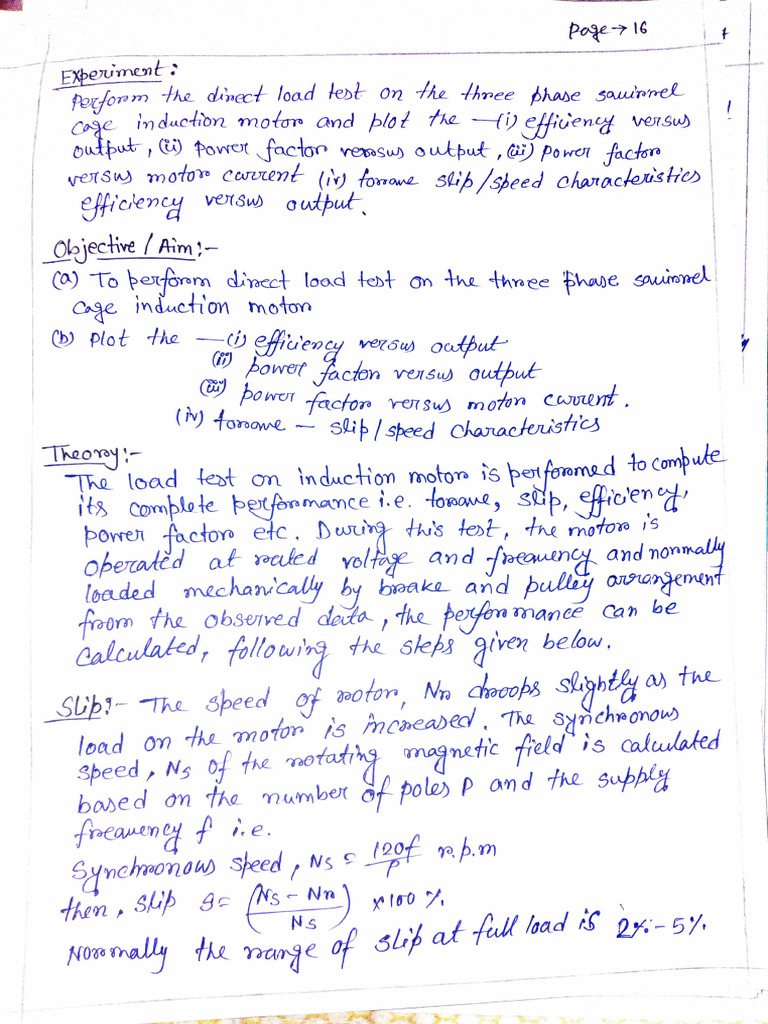 Page → 16
Experiment:
Perform the direct load test on the three phase squirrel
cage induction motor and plot the — (i) efficiency versus
output, (ii) power factor versus output, (iii) power factor
versus motor current (iv) torque slip/speed characteristics
efficiency versus output.
Objective / Aim:-
(a) To perform direct load test on the three phase squirrel
cage induction motor
(b) Plot the — (i) efficiency versus output
(ii) power factor versus output
(iii) power factor versus motor current.
(iv) torque — slip/speed characteristics
Theory:-
The load test on induction motor is performed to compute
its complete performance i.e. torque, slip, efficiency,
power factor etc. During this test, the motor is
operated at rated voltage and frequency and normally
loaded mechanically by brake and pulley arrangement
from the observed data, the performance can be
calculated, following the steps given below.
Slip:- The speed of rotor, Nr droops slightly as the
load on the motor is increased. The synchronous
speed, Ns of the rotating magnetic field is calculated
based on the number of poles P and the supply
frequency f i.e.
Synchronous speed, Ns = 120f/P r.p.m
then, slip S = (Ns - Nr / Ns) x100 %.
Normally the range of slip at full load is 2% - 5%.